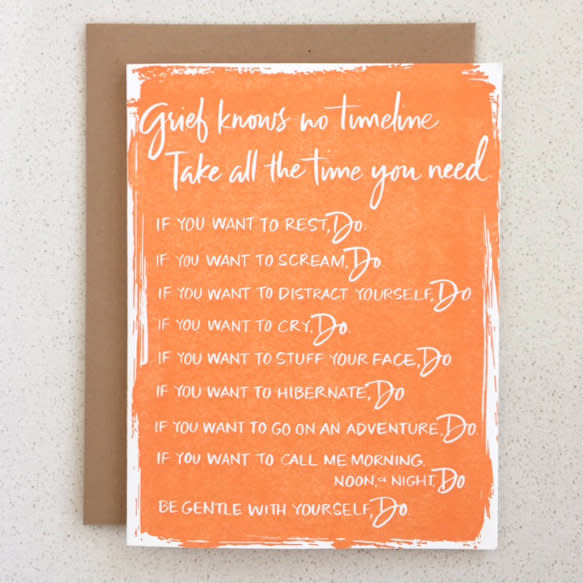 Grief knows no timeline
Take all the time you need
IF YOU WANT TO REST, Do.
IF YOU WANT TO SCREAM, Do
IF YOU WANT TO DISTRACT YOURSELF, Do
IF YOU WANT TO CRY, Do.
IF YOU WANT TO STUFF YOUR FACE, Do
IF YOU WANT TO HIBERNATE, Do
IF YOU WANT TO GO ON AN ADVENTURE, Do.
IF YOU WANT TO CALL ME MORNING,
NOON, or NIGHT, Do
BE GENTLE WITH YOURSELF, Do.